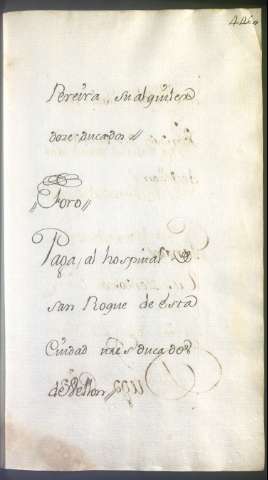 Pereira, su alquiler
doze ducados //
// Foro //
Paga, al hospital de
san Roque de esta
Ciudad ducados
de Vellon